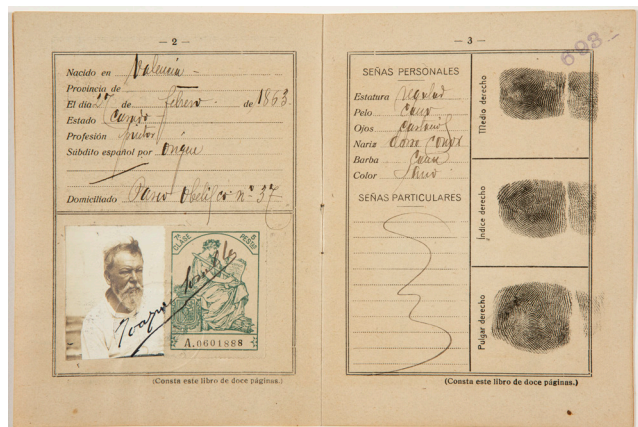 — 2 —
Nacido en Valencia -
Provincia de
El dia 27 de febrero de 1863.
Estado Casado
Profesión pintor
Súbdito español por origen
Domiciliado Paseo Obelisco nº 37
7ª CLASE
8 PESETAS
Joaquin Sorolla
A.0601888
(Consta este libro de doce páginas.)
— 3 —
693-
SEÑAS PERSONALES
Estatura
Pelo Cano
Ojos Castaños
Nariz
Barba Cana
Color Sano
SEÑAS PARTICULARES
Medio derecho
Indice derecho
Pulgar derecho
(Consta este libro de doce páginas.)